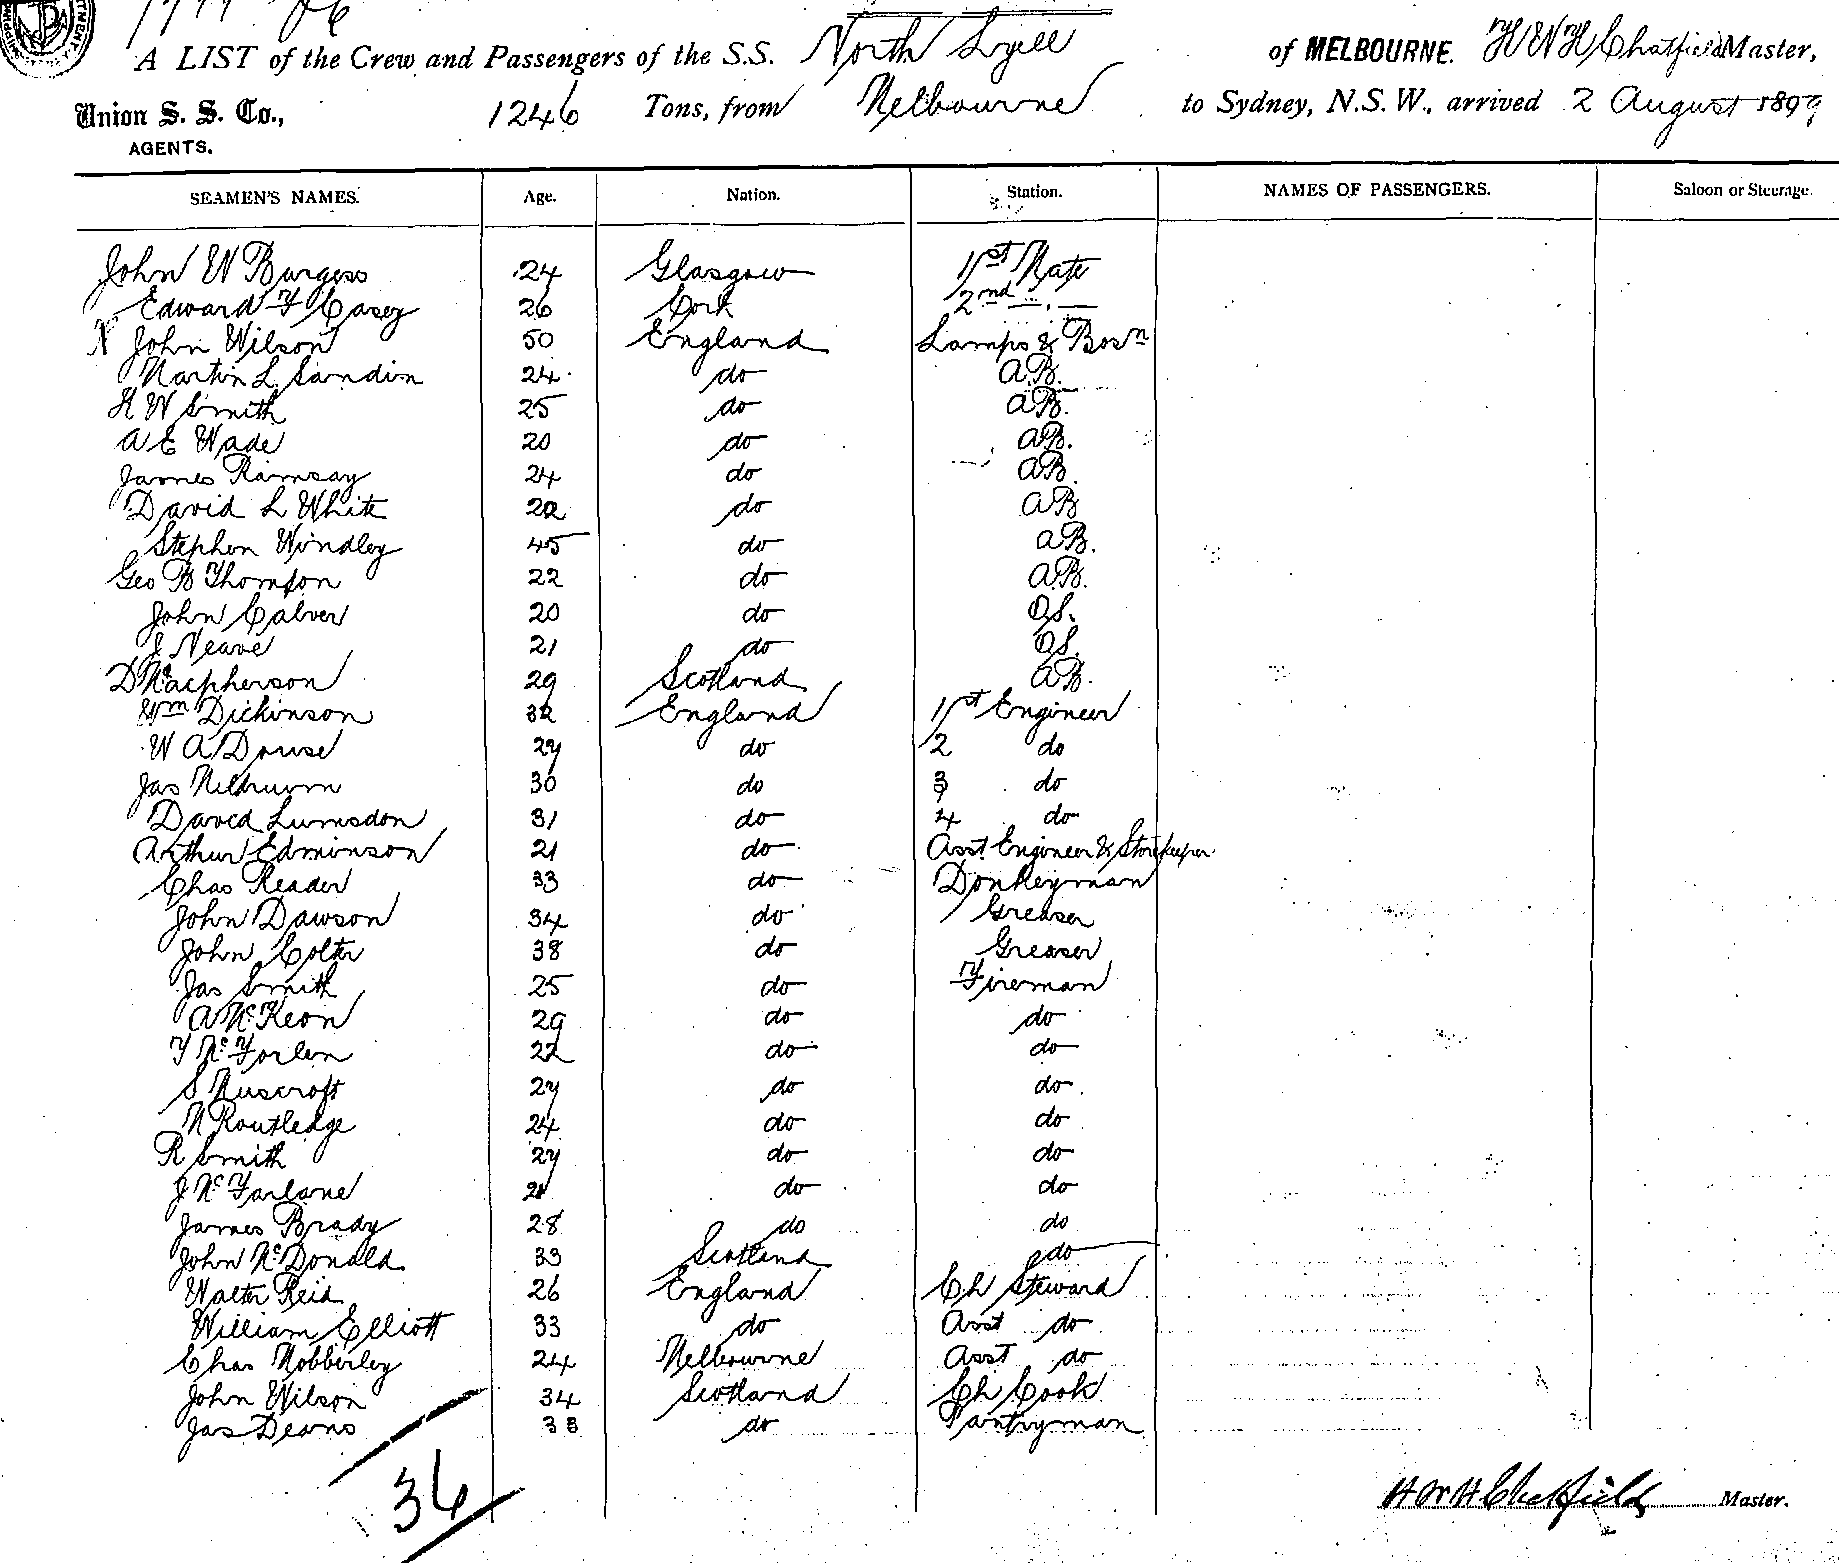 A LIST of the Crew and Passengers of the S.S. North Lyell of MELBOURNE. H W H Chatfield Master,
Union S. S. Co., 1246 Tons, from Melbourne to Sydney, N.S.W., arrived 2 August 1897
AGENTS.
SEAMEN'S NAMES. Age. Nation. Station. NAMES OF PASSENGERS. Saloon or Steerage.
John W Burgess 24 Glasgow 1st Mate
Edward F Casey 26 Cork 2nd —"—
X John Wilson 50 England Lamps & Bosn
Martin L Sandin 24 do A.B.
H W Smith 25 do A.B.
A E Wade 20 do A.B.
James Ramsay 24 do A.B.
David L White 22 do A.B.
Stephen Windley 45 do A.B.
Geo B Thompson 22 do A.B.
John Calver 20 do O.S.
J Neave 21 do O.S.
D Macpherson 29 Scotland A.B.
Wm Dickinson 32 England 1st Engineer
W A Douse 27 do 2 do
Jas Meldrum 30 do 3 do
David Lumsdon 31 do 4 do
Arthur Edminson 21 do Asst. Engineer & Storekeeper
Chas Reader 33 do Donkeyman
John Dawson 34 do Greaser
John Colter 38 do Greaser
Jas Smith 25 do Fireman
A McKeon 29 do do
T McForlen 22 do do
S Muscroft 27 do do
M Routledge 24 do do
R Smith 27 do do
J McFarlane 21 do do
James Brady 28 do do
John McDonald 33 Scotland do
Walter Reid 26 England Ch Steward
William Elliott 33 do Asst do
Chas Mobberley 24 Melbourne Asst do
John Wilson 34 Scotland Ch Cook
Jas Deans 33 do Pantryman
36
H W H Chatfield Master.